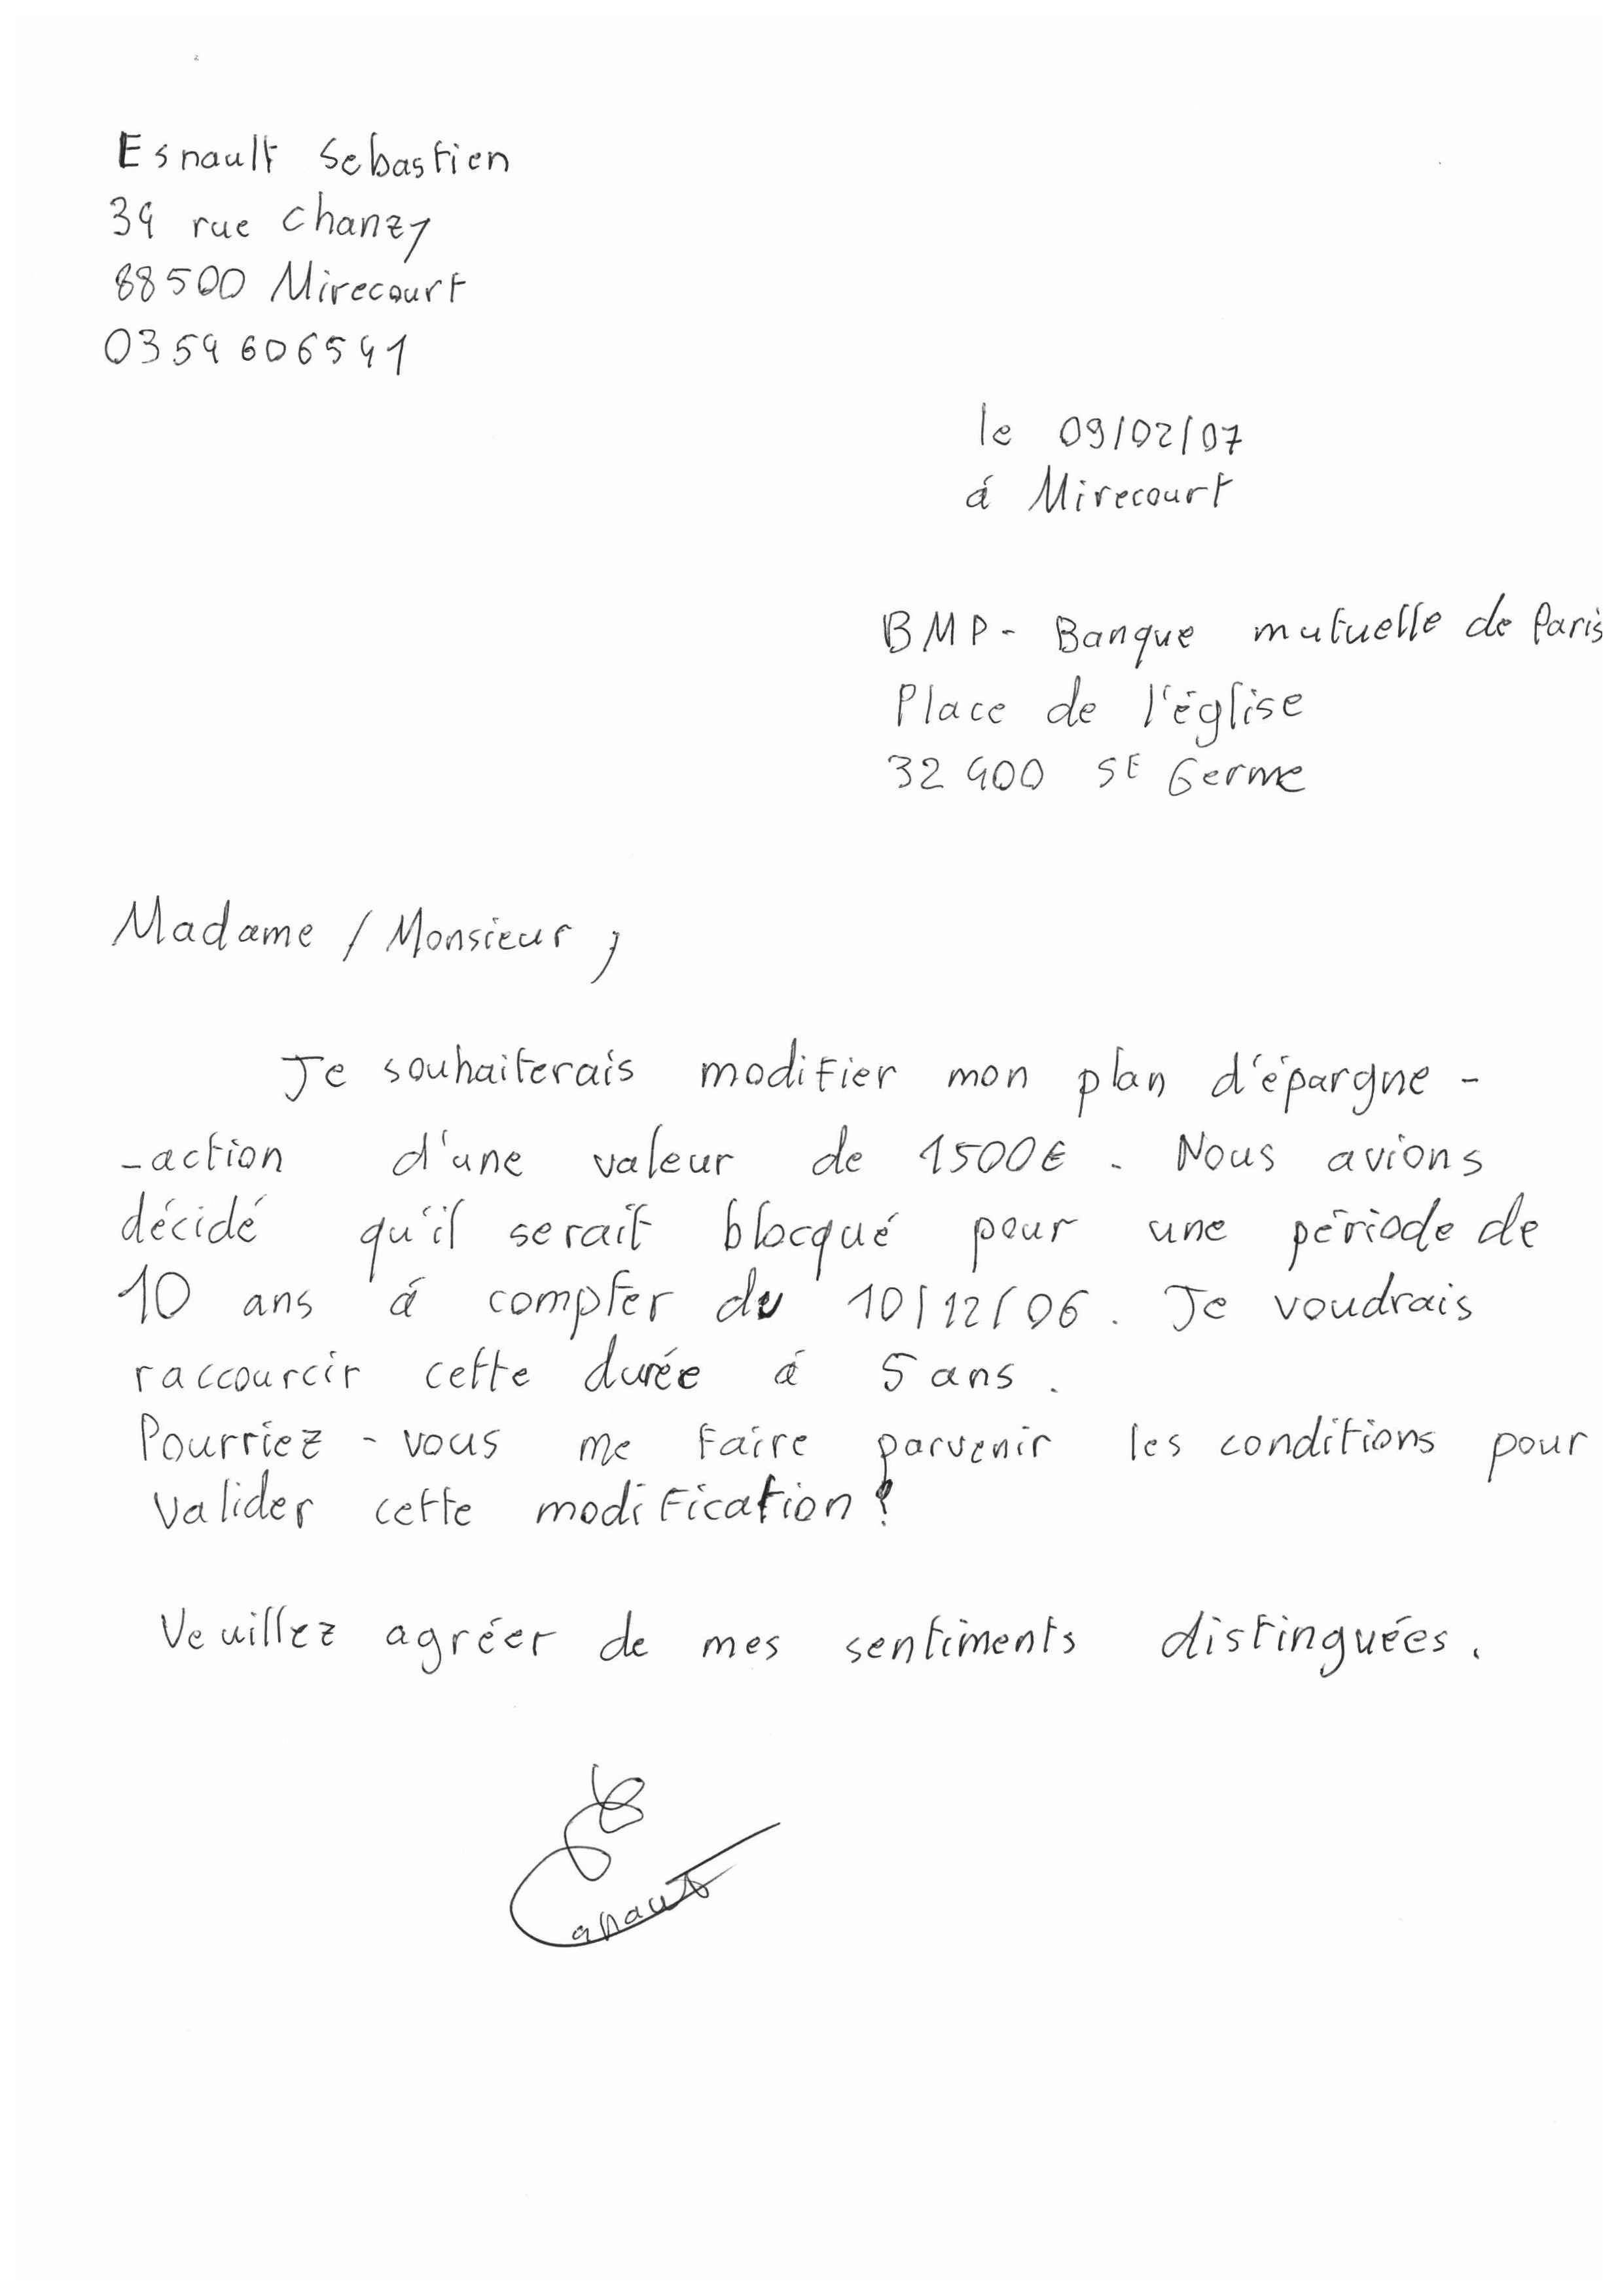 Esnault Sebastien
34 rue Chanzy
88500 Mirecourt
0354606541
le 09/02/07
à Mirecourt
BMP - Banque mutuelle de Paris
Place de l'église
32 400 St Germe
Madame / Monsieur,
Je souhaiterais modifier mon plan d'épargne -
-action d'une valeur de 1500€. Nous avions
décidé qu'il serait blocqué pour une période de
10 ans à compter du 10/12/06. Je voudrais
raccourcir cette durée à 5 ans.
Pourriez-vous me faire parvenir les conditions pour
valider cette modification?
Veuillez agréer de mes sentiments distinguées.